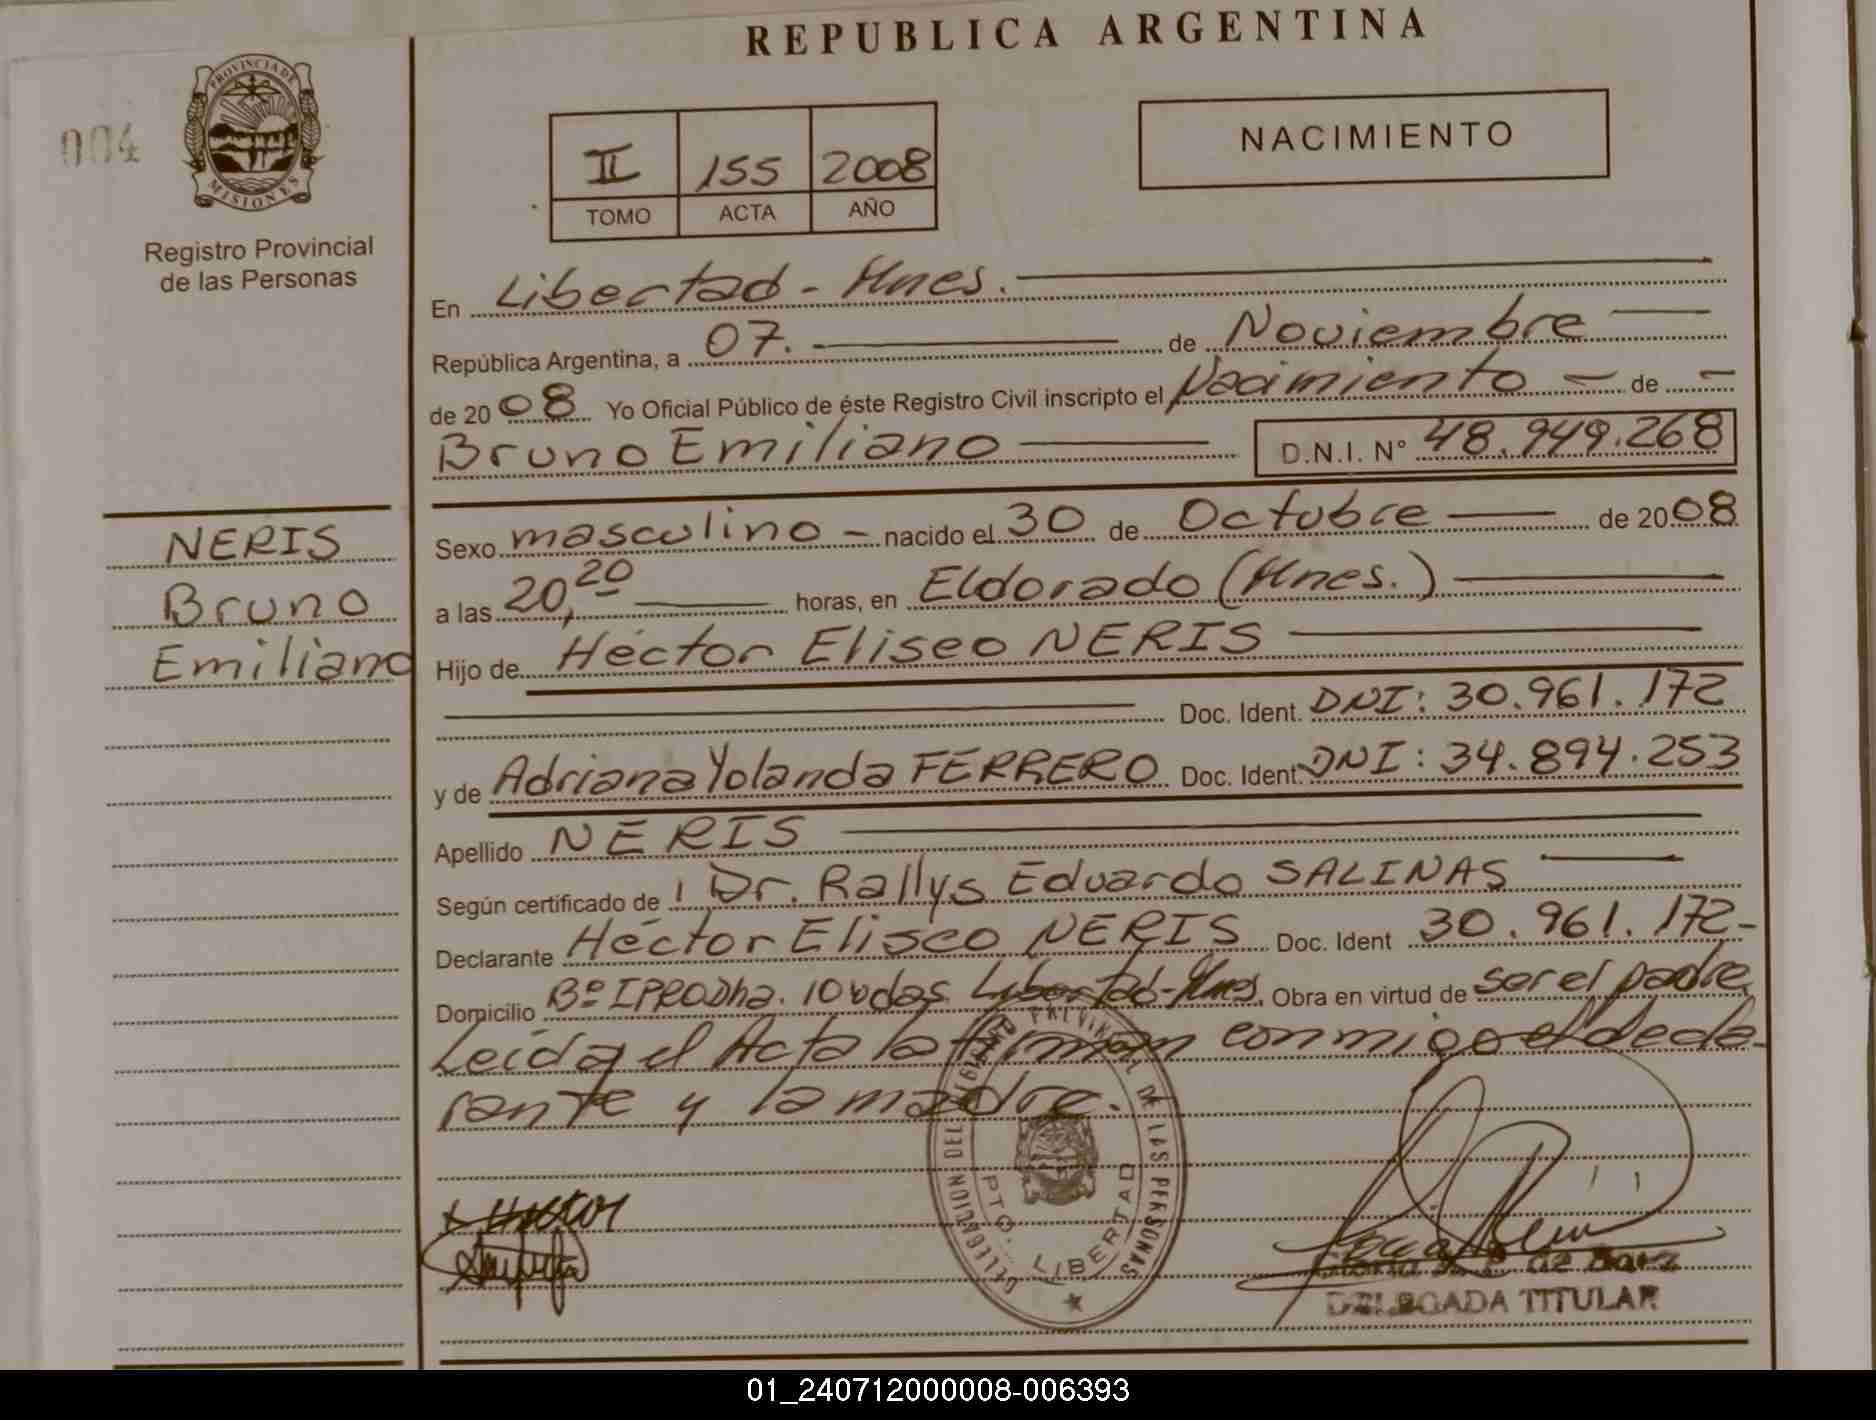 REPUBLICA ARGENTINA
004
PROVINCIA DE
MISIONES
Registro Provincial
de las Personas
II 155 2008
TOMO ACTA AÑO
NACIMIENTO
En Libertad - Mnes.
República Argentina, a 07. de Noviembre
de 2008 Yo Oficial Público de éste Registro Civil inscripto el Nacimiento - de -
Bruno Emiliano D.N.I. N° 48.949.268
NERIS
Bruno
Emiliano
Sexo masculino - nacido el 30 de Octubre de 2008
a las 20,20 horas, en Eldorado (Mnes.)
Hijo de Héctor Eliseo NERIS
Doc. Ident. DNI: 30.961.172
y de Adriana Yolanda FERRERO Doc. Ident. DNI: 34.894.253
Apellido NERIS
Según certificado de Dr. Rallys Eduardo SALINAS
Declarante Héctor Eliseo NERIS Doc. Ident 30.961.172-
Domicilio Bº IPRODha. 10 vdas. Libertad-Mnes. Obra en virtud de ser el padre.
Leída el Acta la firman conmigo el decla-
rante y la madre.
DELEGACION DEL DE LAS PERSONAS
PTO. LIBERTAD
Hector
de Baez
DELEGADA TITULAR
01_240712000008-006393